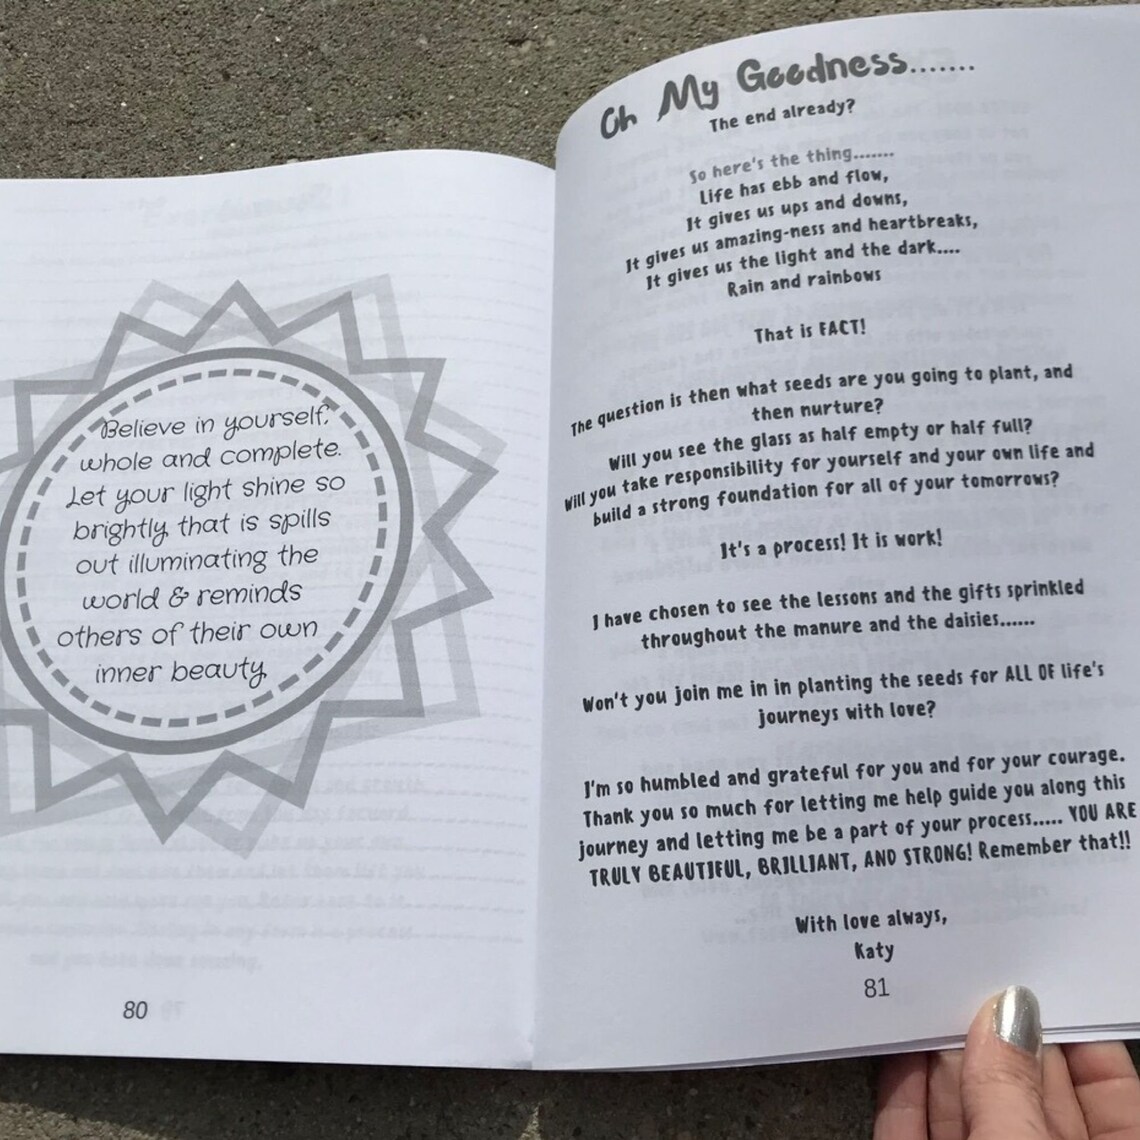 Believe in yourself,
whole and complete.
Let your light shine so
brightly that is spills
out illuminating the
world & reminds
others of their own
inner beauty
80
Oh My Goodness.......
The end already?
So here's the thing.......
Life has ebb and flow,
It gives us ups and downs,
It gives us amazing-ness and heartbreaks,
It gives us the light and the dark....
Rain and rainbows
That is FACT!
The question is then what seeds are you going to plant, and
then nurture?
Will you see the glass as half empty or half full?
Will you take responsibility for yourself and your own life and
build a strong foundation for all of your tomorrows?
It's a process! It is work!
I have chosen to see the lessons and the gifts sprinkled
throughout the manure and the daisies......
Won't you join me in in planting the seeds for ALL OF life's
journeys with love?
I'm so humbled and grateful for you and for your courage.
Thank you so much for letting me help guide you along this
journey and letting me be a part of your process..... YOU ARE
TRULY BEAUTIFUL, BRILLIANT, AND STRONG! Remember that!!
With love always,
Katy
81